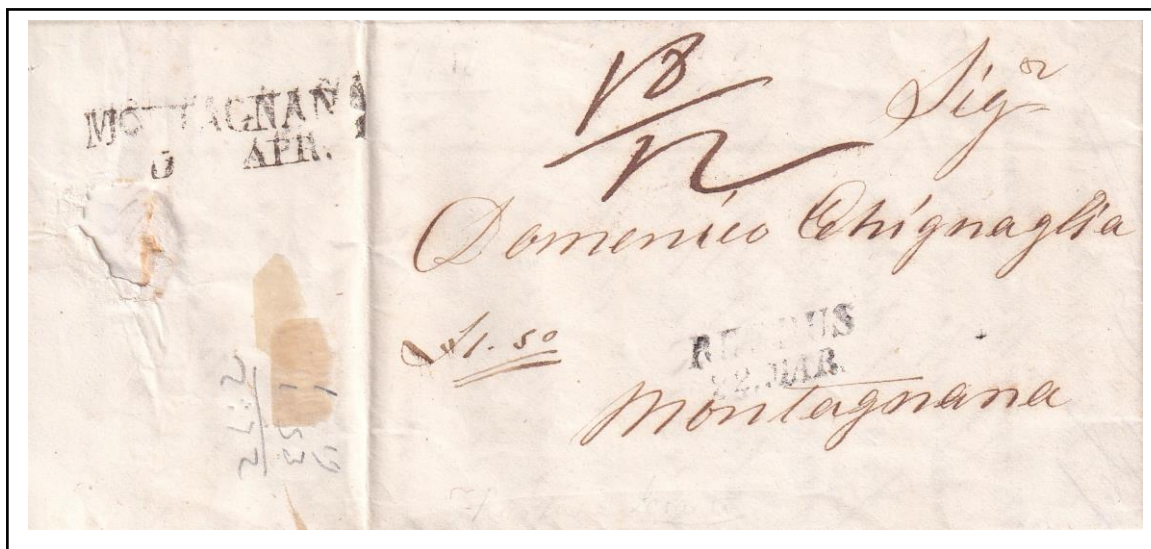 MONTAGNANA
5 APR.
18/12
Sigr
Domenico Chignaglia
£1.50
22.MAR.
Montagnana